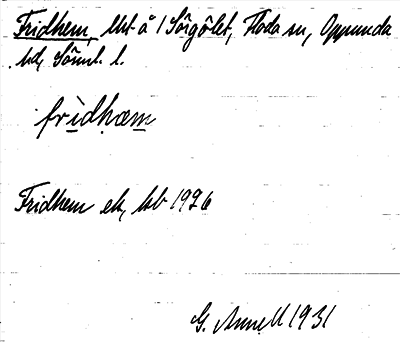 Fridhem, lht å 1 Sörgölet, Floda sn, Oppunda
hd, Söml. l.
fridhæm
Fridhem ek, kb 1926
G. Annell 1931